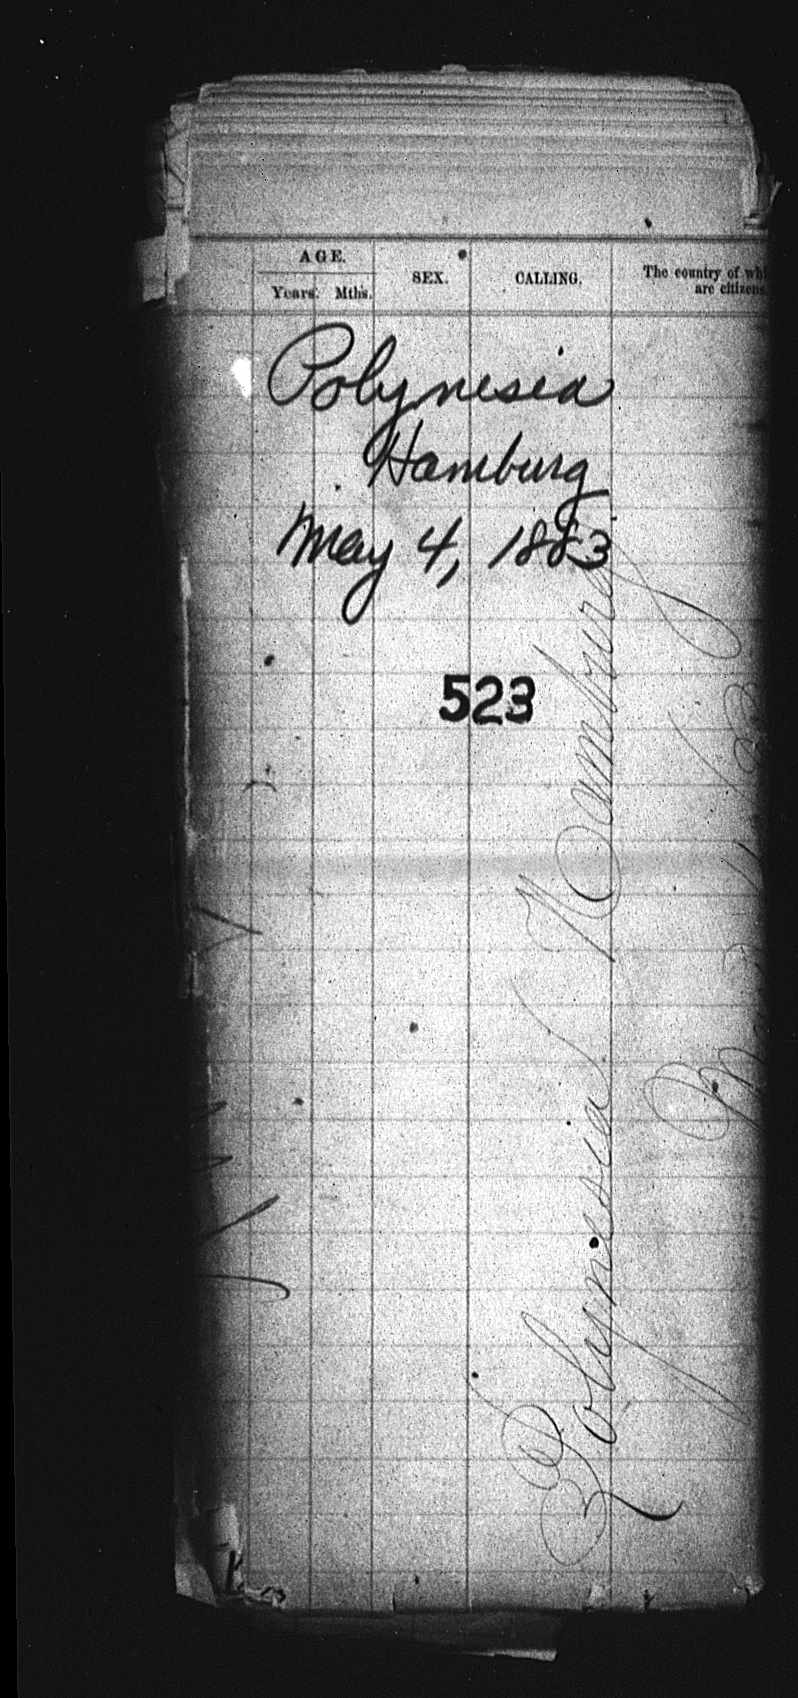 AGE.
Years. Mths.
SEX.
CALLING.
The country of
are citizens
Polynesia
Hamburg
May 4, 1883
523
Polynesia Hamburg